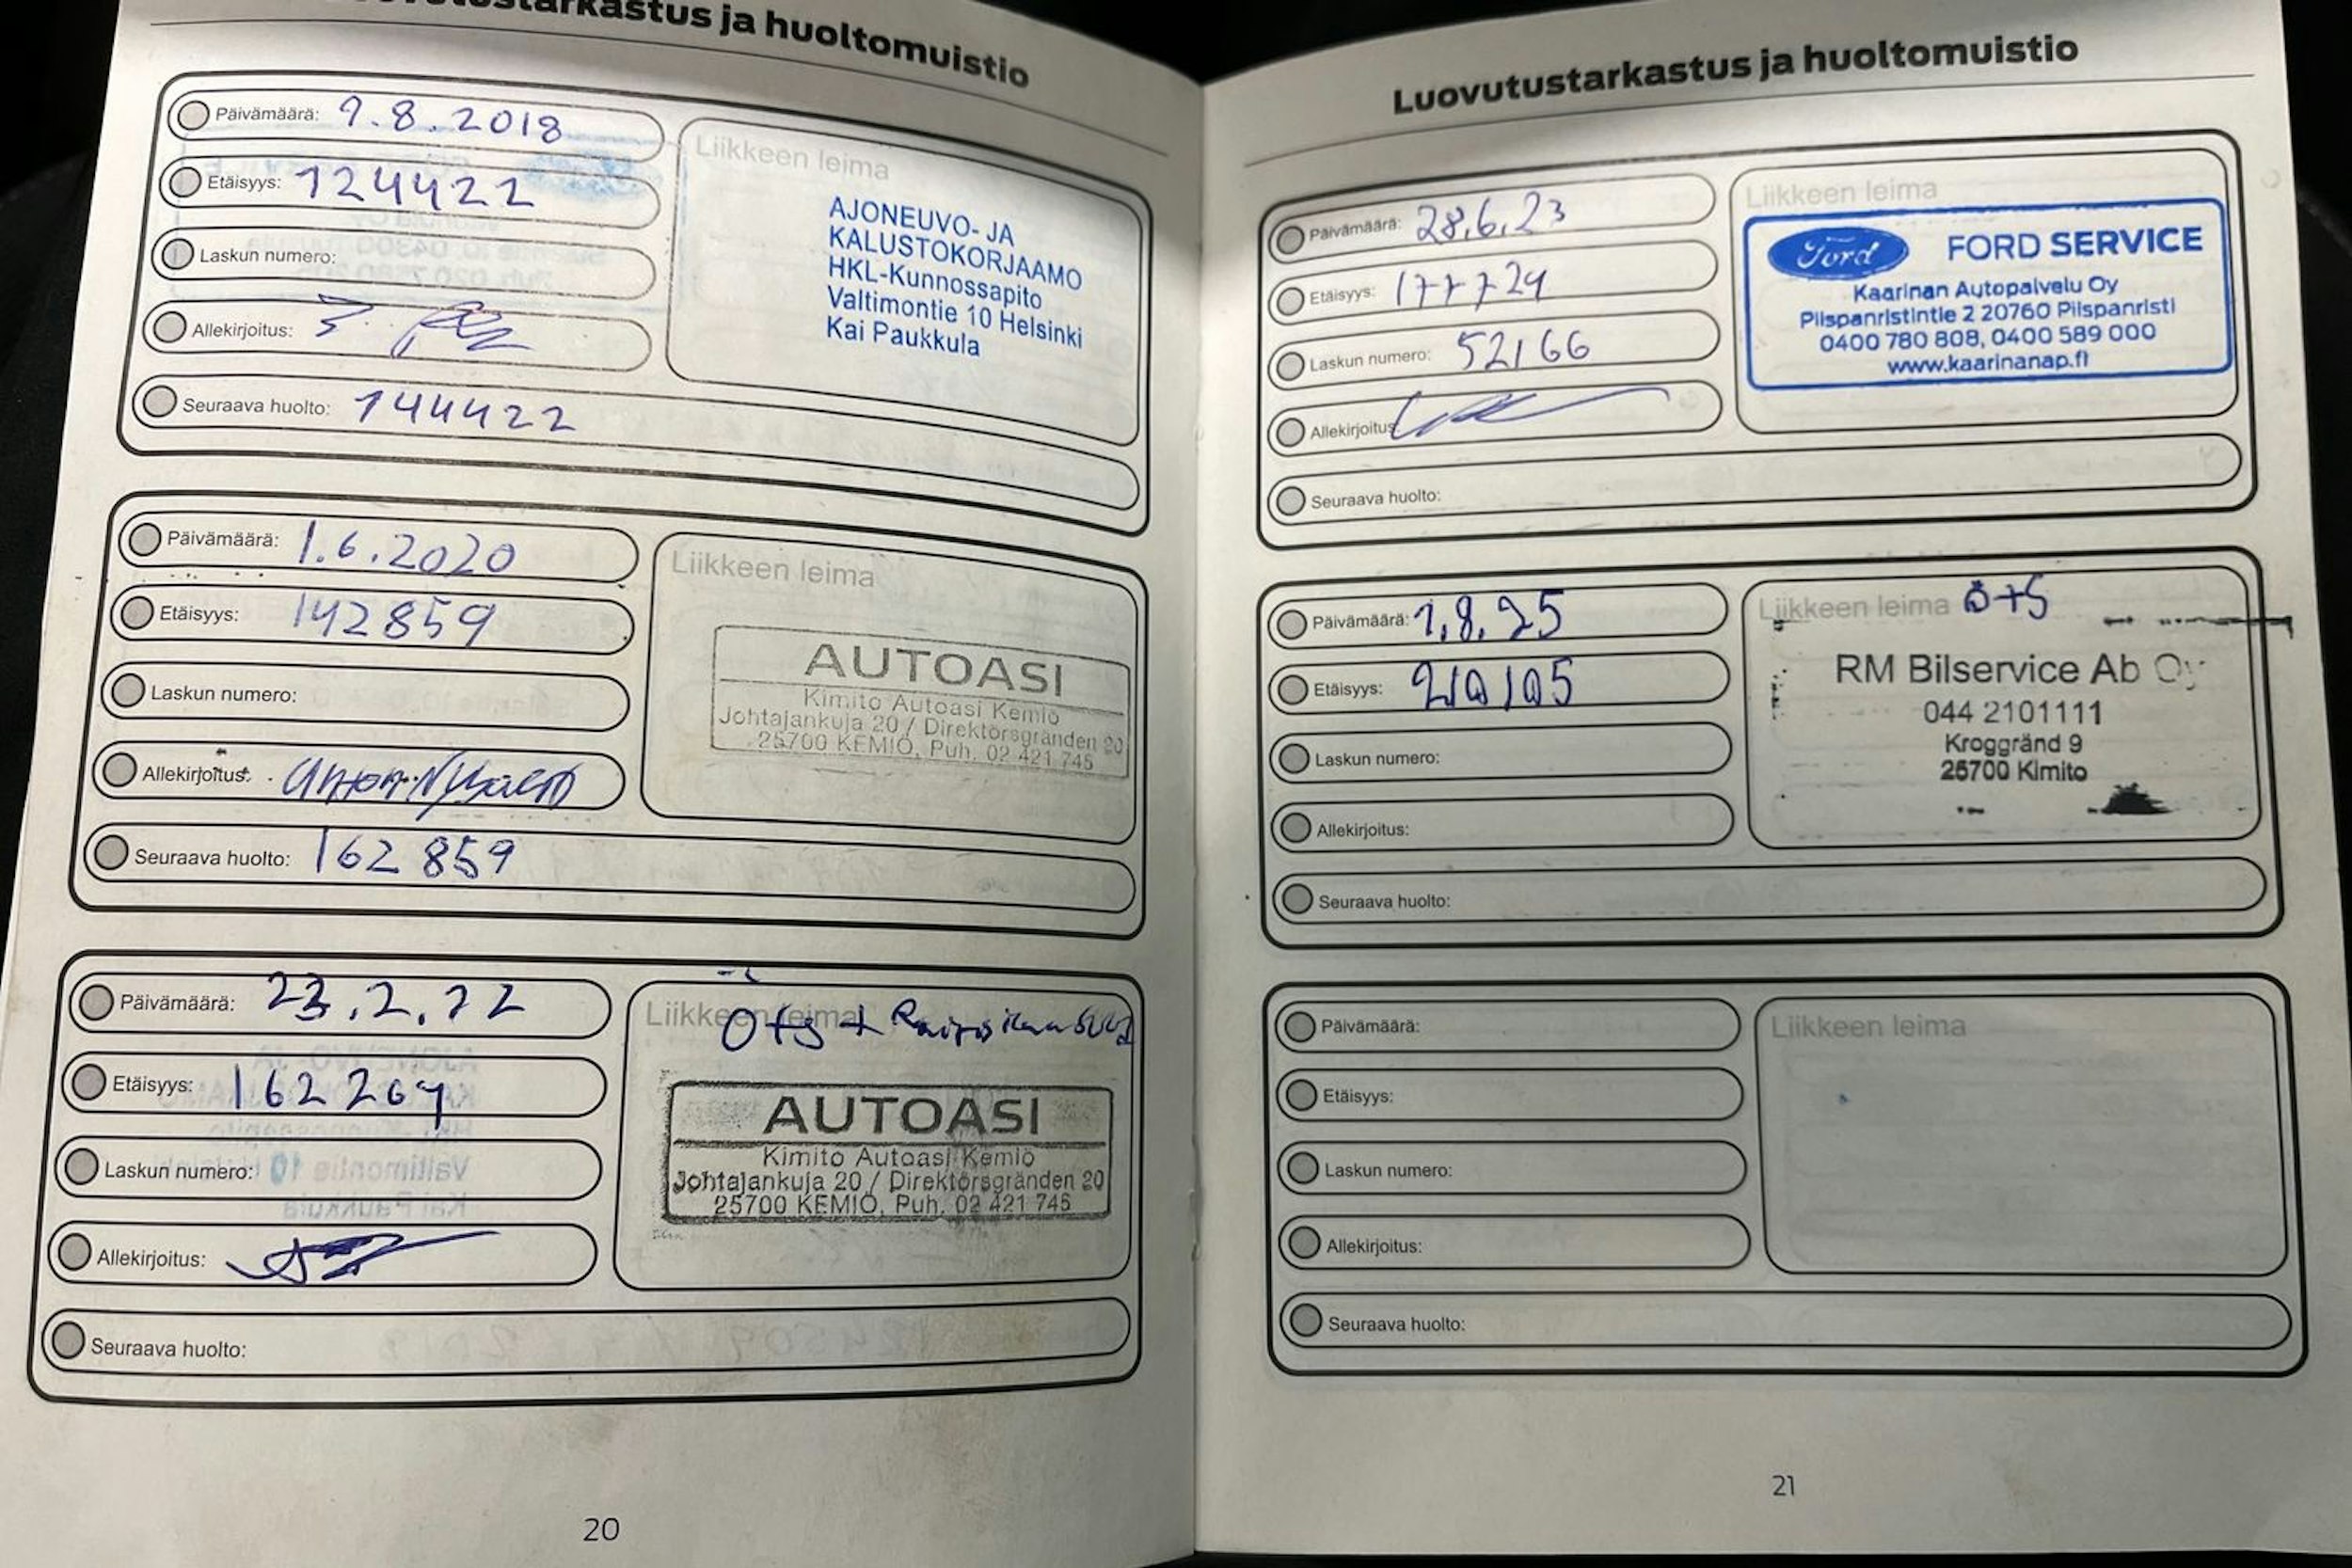 Luovutustarkastus ja huoltomuistio
Päivämäärä: 9.8.2018
Etäisyys: 124422
Laskun numero:
Allekirjoitus:
Seuraava huolto: 144422
Liikkeen leima
AJONEUVO- JA
KALUSTOKORJAAMO
HKL-Kunnossapito
Valtimontie 10 Helsinki
Kai Paukkula
Päivämäärä: 1.6.2020
Etäisyys: 142859
Laskun numero:
Allekirjoitus:
Seuraava huolto: 162859
Liikkeen leima
AUTOASI
Kimito Autoasi Kemiö
Johtajankuja 20 / Direktörsgränden 20
25700 KEMIÖ, Puh. 02 421 745
Päivämäärä: 23.2.22
Etäisyys: 162264
Laskun numero:
Allekirjoitus:
Seuraava huolto:
Liikkeen leima
Ö+S +
AUTOASI
Kimito Autoasi Kemiö
Johtajankuja 20 / Direktörsgränden 20
25700 KEMIÖ, Puh. 02 421 745
20
Luovutustarkastus ja huoltomuistio
Päivämäärä: 28.6.23
Etäisyys: 177724
Laskun numero: 52166
Allekirjoitus:
Seuraava huolto:
Liikkeen leima
Ford FORD SERVICE
Kaarinan Autopalvelu Oy
Piispanristintie 2 20760 Piispanristi
0400 780 808, 0400 589 000
www.kaarinanap.fi
Päivämäärä: 1.8.25
Etäisyys: 210105
Laskun numero:
Allekirjoitus:
Seuraava huolto:
Liikkeen leima Ö+S
RM Bilservice Ab Oy
044 2101111
Kroggränd 9
25700 Kimito
Päivämäärä:
Etäisyys:
Laskun numero:
Allekirjoitus:
Seuraava huolto:
Liikkeen leima
21